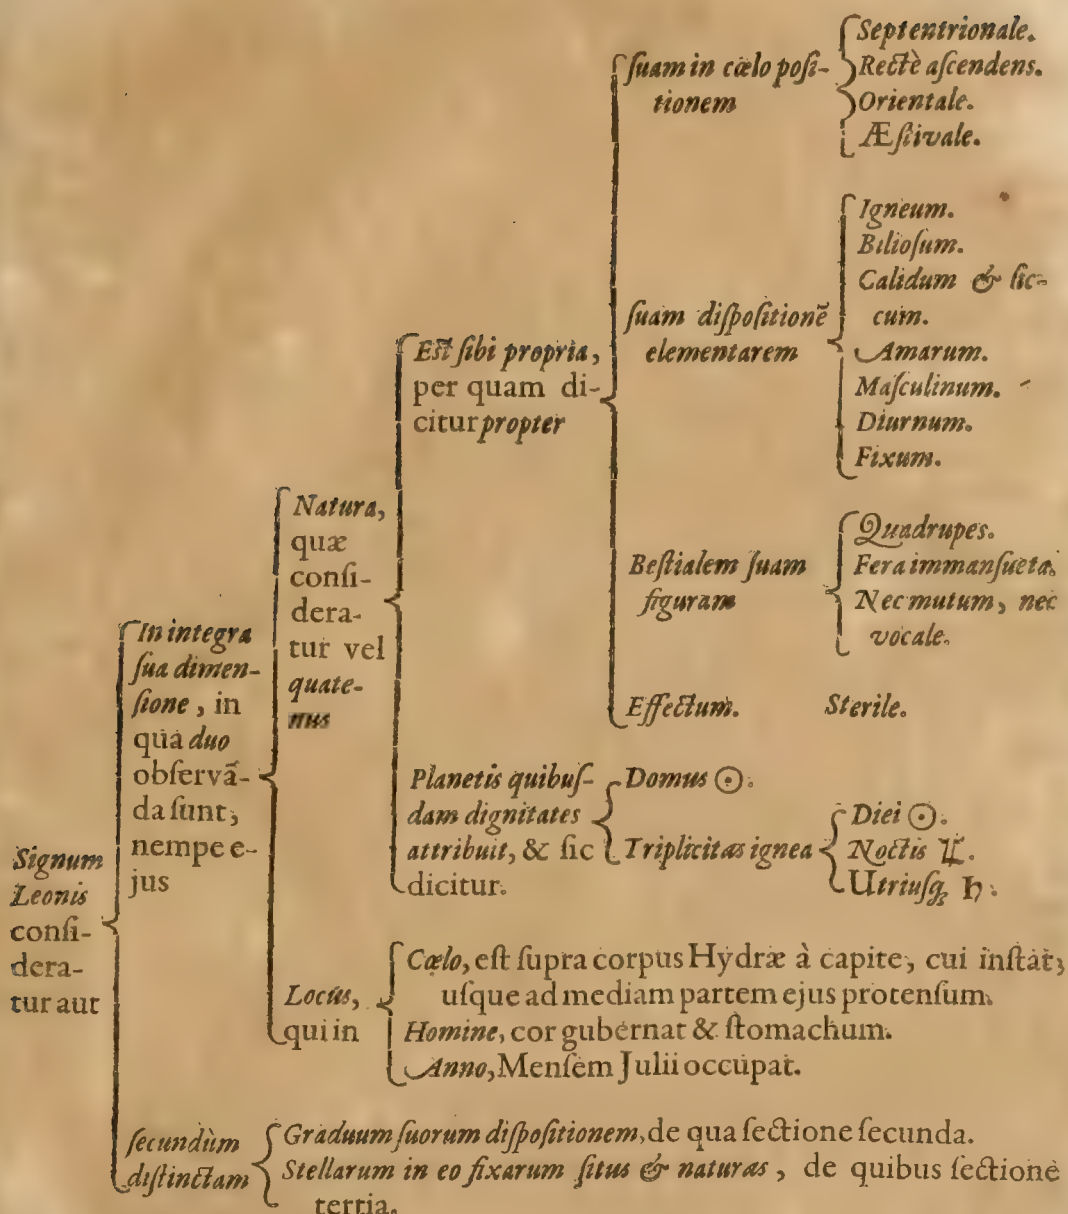 Signum
Leonis
consi-
dera-
tur aut
In integra
sua dimen-
sione, in
quâ duo
observā-
da sunt,
nempe e-
jus
Natura,
quæ
consi-
dera-
tur vel
quate-
nus
Est sibi propria,
per quam di-
citur propter
suam in cœlo posi-
tionem
Septentrionale.
Rectè ascendens.
Orientale.
Æstivale.
suam dispositionẽ
elementarem
Igneum.
Biliosum.
Calidum & sic-
cum.
Amarum.
Masculinum.
Diurnum.
Fixum.
Bestialem suam
figuram
Quadrupes.
Fera immansueta.
Nec mutum, nec
vocale.
Effectum. Sterile.
Planetis quibus-
dam dignitates
attribuit, & sic
dicitur.
Domus ☉.
Triplicitas ignea
Diei ☉.
Noctis ♃.
Utriusq; ♄.
Locus,
qui in
Cœlo, est supra corpus Hydræ à capite, cui instat,
usque ad mediam partem ejus protensum.
Homine, cor gubernat & stomachum.
Anno, Mensem Julii occupat.
secundùm
distinctam
Graduum suorum dispositionem, de qua sectione secunda.
Stellarum in eo fixarum situs & naturas, de quibus sectione
tertia.